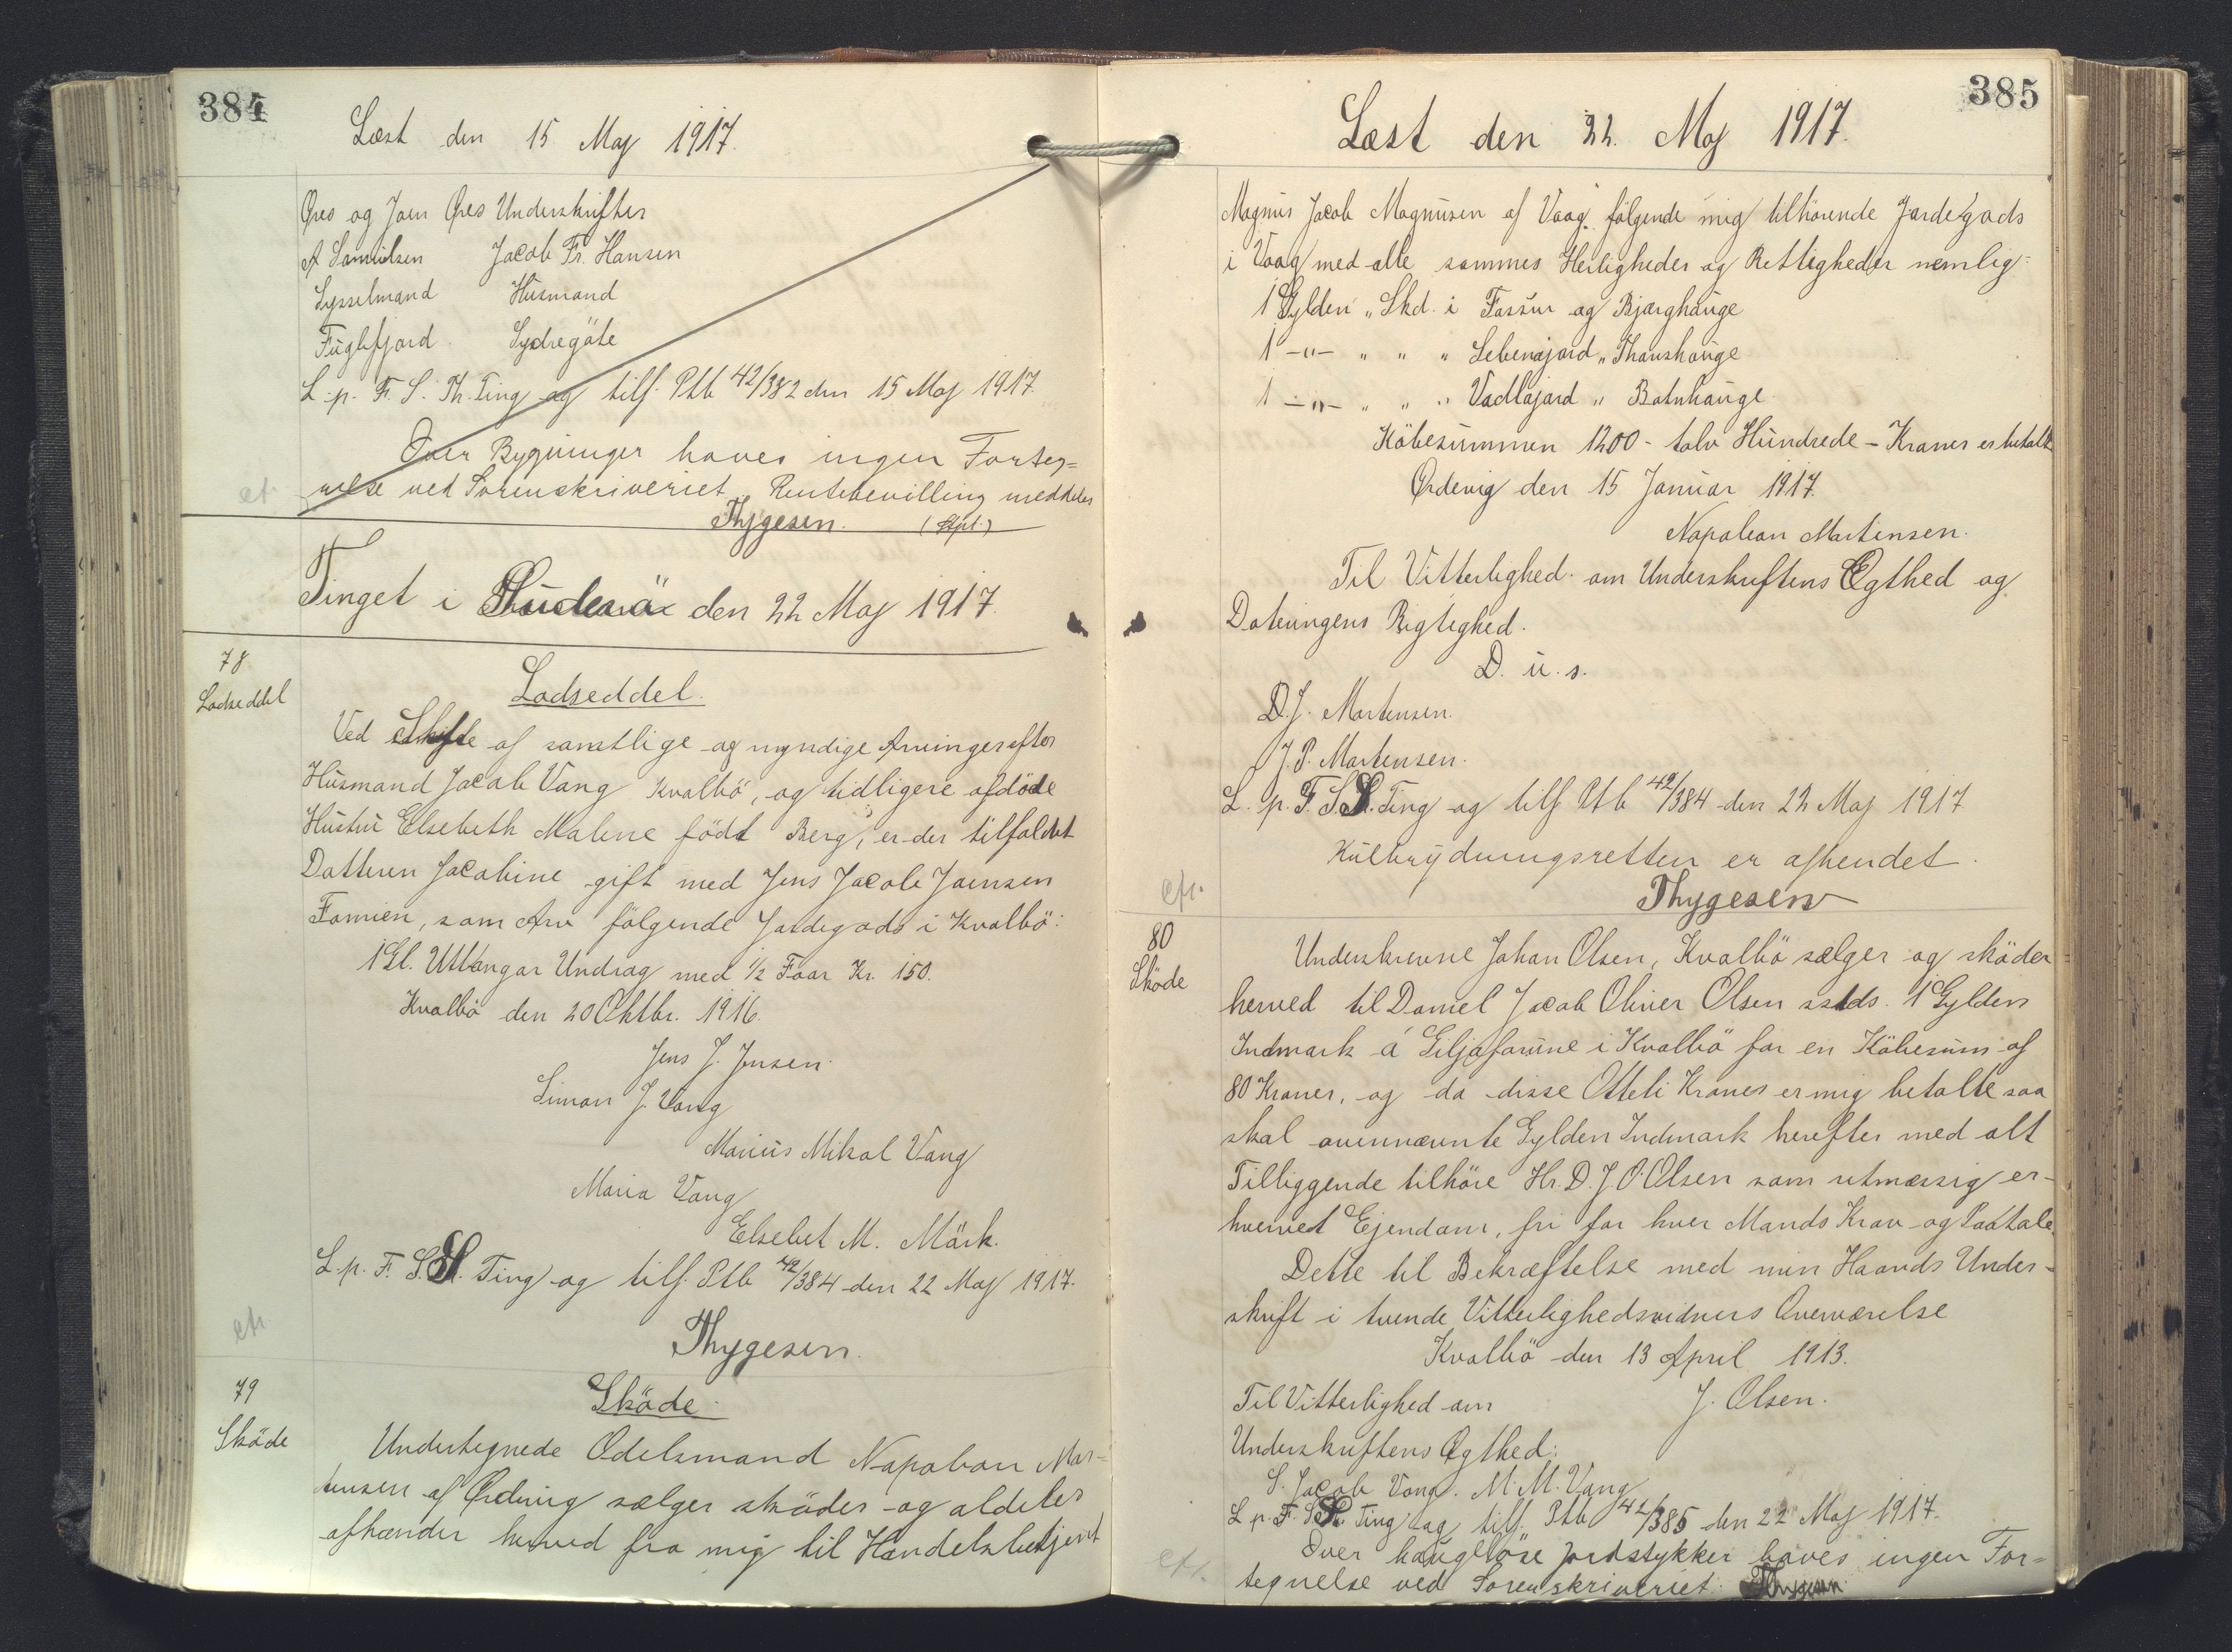 384
Læst den 15 Maj 1917.
Øres og Joen Øres Underskrifter
A Samuelsen Jacob Fr. Hansen
Sysselmand Husmand
Fuglefjord Sydregöte
L. p. F. S. Th. Ting og tilf. Ptb 42/382 den 15 Maj 1917.
Over Bygninger haves ingen Forteg=
nelse ved Sorenskriveriet. Rentebevilling meddeles
Thygesen.
Tinget i Suderö den 22 Maj 1917.
78
Lodseddel
Lodseddel.
Ved Skifte af samtlige og myndige Arvinger efter
Husmand Jacob Vang Kvalbö, og tidligere afdöde
Hustru Elsebeth Malene födt Berg, er der tilfaldet
Datteren Jacobine gift med Jens Jacob Joensen
Famien, som Arv fölgende Jordegods i Kvalbö:
1 Gl. Uttangar Undrag med 1/2 Faar Kr. 150.
Kvalbö den 20 Oktbr. 1916.
Jens J. Jensen.
Simon J. Vang
Marius Mikal Vang
Maria Vang
Elsebet M. Mörk.
L. p. F. S. S. Ting og tilf. Ptb 42/384 den 22 Maj 1917.
Thygesen.
79
Sköde
Sköde.
Undertegnede Odelsmand Napoleon Mor=
tensen af Ördevig sælger sköder og aldeles
afhænder herved fra mig til Handelsbetjent
385
Læst den 22. Maj 1917.
Magnus Jacob Magnusen af Vaag fölgende mig tilhörende Jordegods
i Vaag med alle sammes Herligheder og Rettigheder nemlig:
1 Gylden " Skd. i Fossur og Bjarghauge
1 -"- " " " Lebenajord " Thaushauge
1 -"- " " " Vadlajord " Botnhauge
Köbesummen 1200 - tolv Hundrede - Kroner er betalt
Ørdevig den 15 Januar 1917.
Napoleon Mortensen.
Til Vitterlighed om Underskriftens Ægthed og
Dateringens Rigtighed.
D. u. s.
D. J. Mortensen.
J. P. Mortensen.
L. p. F. S. S. Ting og tilf Ptb 42/384 den 22 Maj 1917
Kulbrydningsretten er afhendet.
Thygesen
80
Sköde
Underskrevne Johan Olsen, Kvalbö sælger og sköder
herved til Daniel Jacob Oliver Olsen sstds. 1 Gylden
Indmark á Giljafarune i Kvalbö for en Köbesum af
80 Kroner, og da disse Otteti Kroner er mig betalte saa
skal ovennævnte Gylden Indmark herefter med alt
Tilliggende tilhöre Hr. D. J. O. Olsen som retmæssig er-
hvervet Ejendom, fri for hver Mands Krav og Paatale.
Dette til Bekræftelse med min Haands Under-
skrift i tvende Vitterlighedsvidners Overværelse
Kvalbö den 13 April 1913.
Til Vitterlighed om J. Olsen.
Underskriftens Ægthed:
S. Jacob Vang. M. M. Vang
L. p. F. S. S. Ting og tilf. Ptb 42/385 den 22 Maj 1917.
Over haugelöse Jordstykker haves ingen For=
tegnelse ved Sorenskriveriet. Thygesen